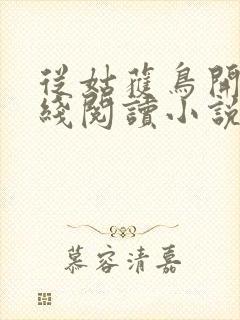 從姑蘓鳥開
綫閱讀小說
慕容清嘉